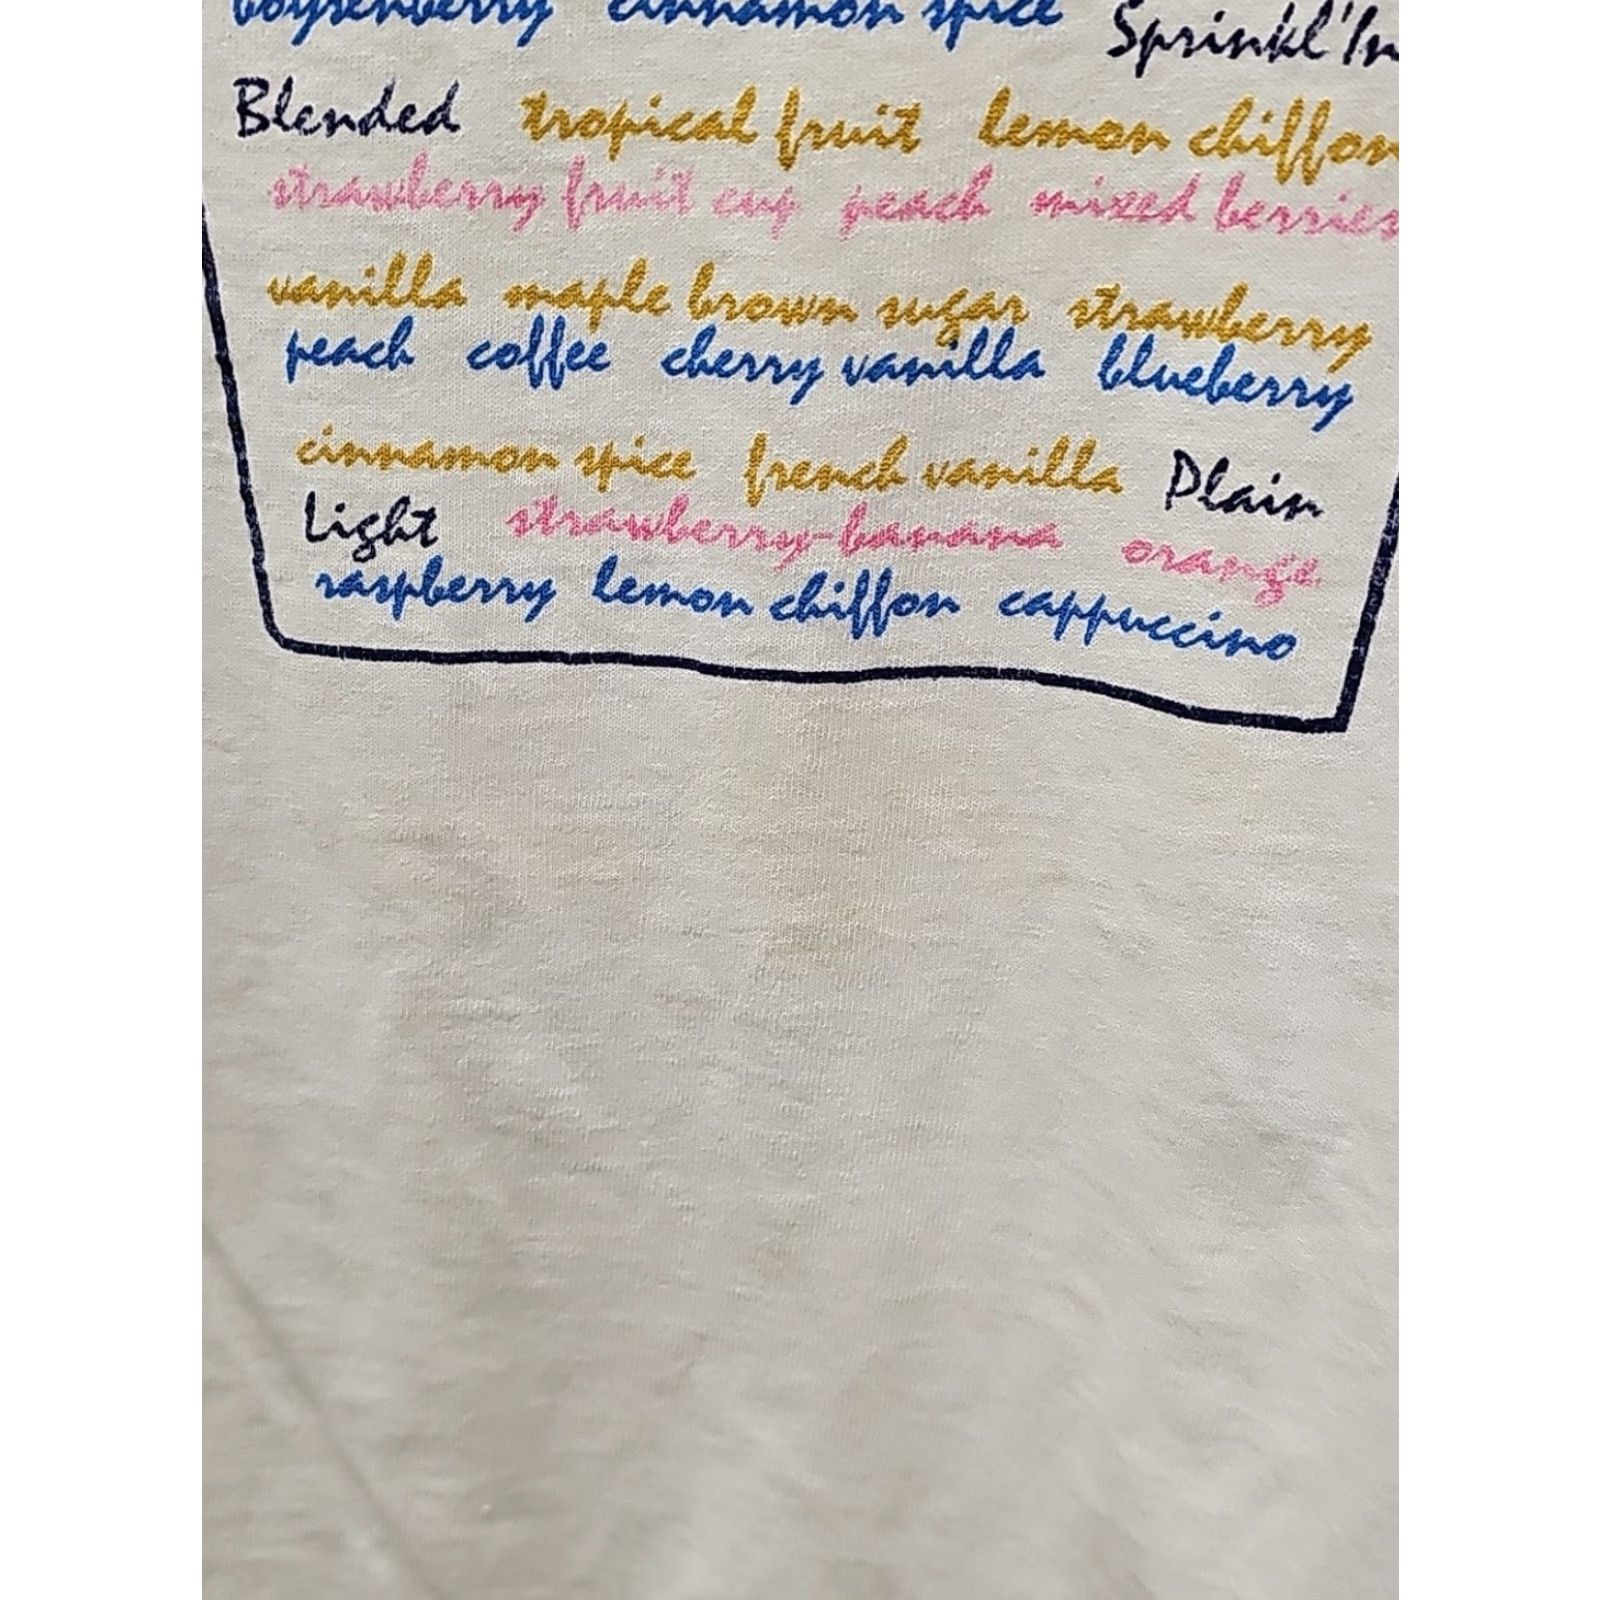 boysenberry cinnamon spice Sprinkl'In
Blended tropical fruit lemon chiffon
strawberry fruit cup peach mixed berries
vanilla maple brown sugar strawberry
peach coffee cherry vanilla blueberry
cinnamon spice french vanilla Plain
Light strawberry-banana orange
raspberry lemon chiffon cappuccino